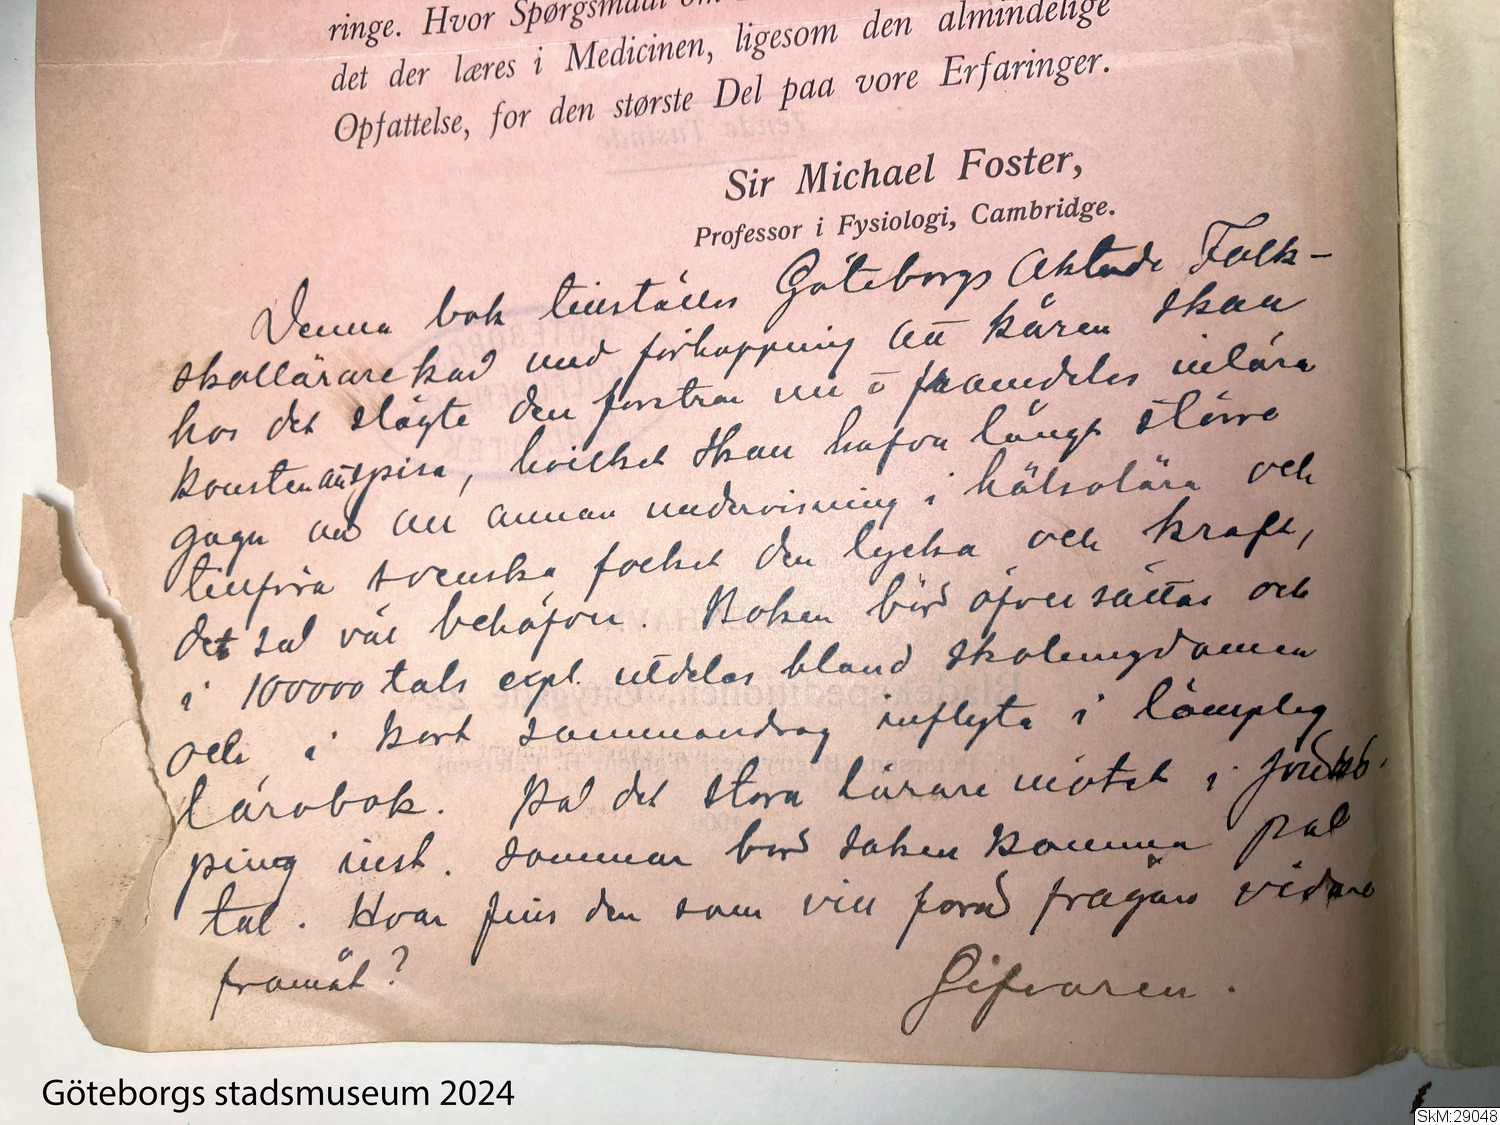 ringe. Hvor Spørgsmaal om
det der læres i Medicinen, ligesom den almindelige
Opfattelse, for den største Del paa vore Erfaringer.
Sir Michael Foster,
Professor i Fysiologi, Cambridge.
Denna bok tillställes Göteborgs Aktade Folk-
skollärarekår med förhoppning att kåren skall
hos det slägte den fostrar nu o framdeles inlära
konsten att spisa, hvilket skall hafva långt större
gagn än all annan undervisning i hälsolära och
tillföra svenska folket den lycka och kraft,
det så väl behöfver. Boken bör öfversättas och
i 100000 tals expl. utdelas bland skolungdomen
och i kort sammandrag inflyta i lämplig
lärobok. På det stora läraremötet i Jönkö-
ping inst. sommar bör saken komma på
tal. Hvar fins den som vill föra frågan vidare
framåt?
Gifvaren.
Göteborgs stadsmuseum 2024
SkM:29048